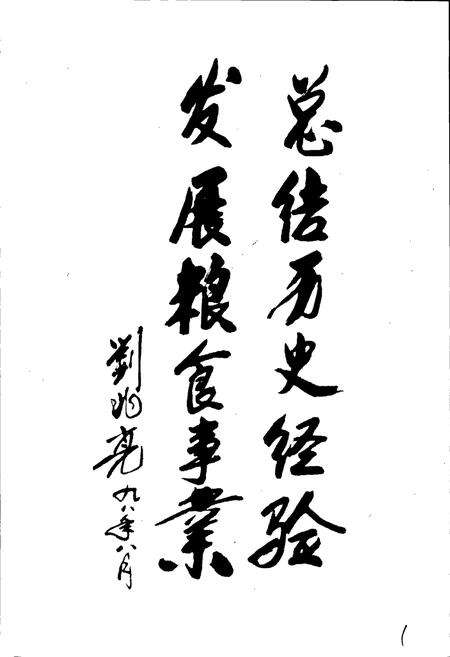 总结历史经验
发展粮食事業
劉兆亮
九八年八月